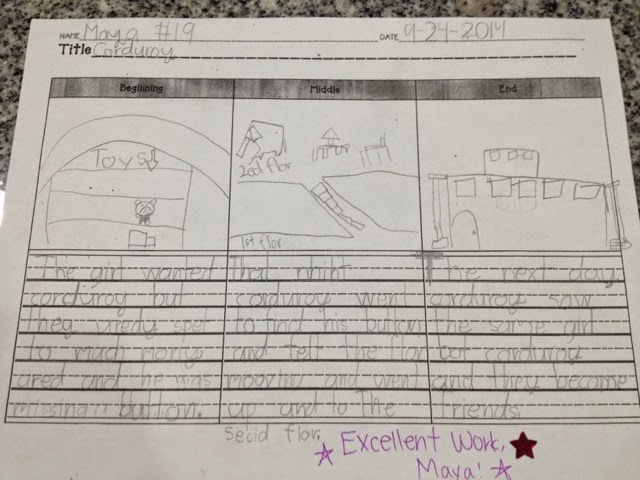 NAME Maya #19 DATE 9-24-2014
Title Corduroy
Beginning Middle End
Toys
2ecd flor
1st flor
The girl wanted
corduroy but
they uredy spet
to much mony
ared and he was
missing a button.
That nhiht
corduroy went
to find his button
and felt the flor
moovind and went
up and to The
Secid flor.
The next day
corduroy saw
the same girl
bot corduroy
and they became
friends.
Excellent Work,
Maya!